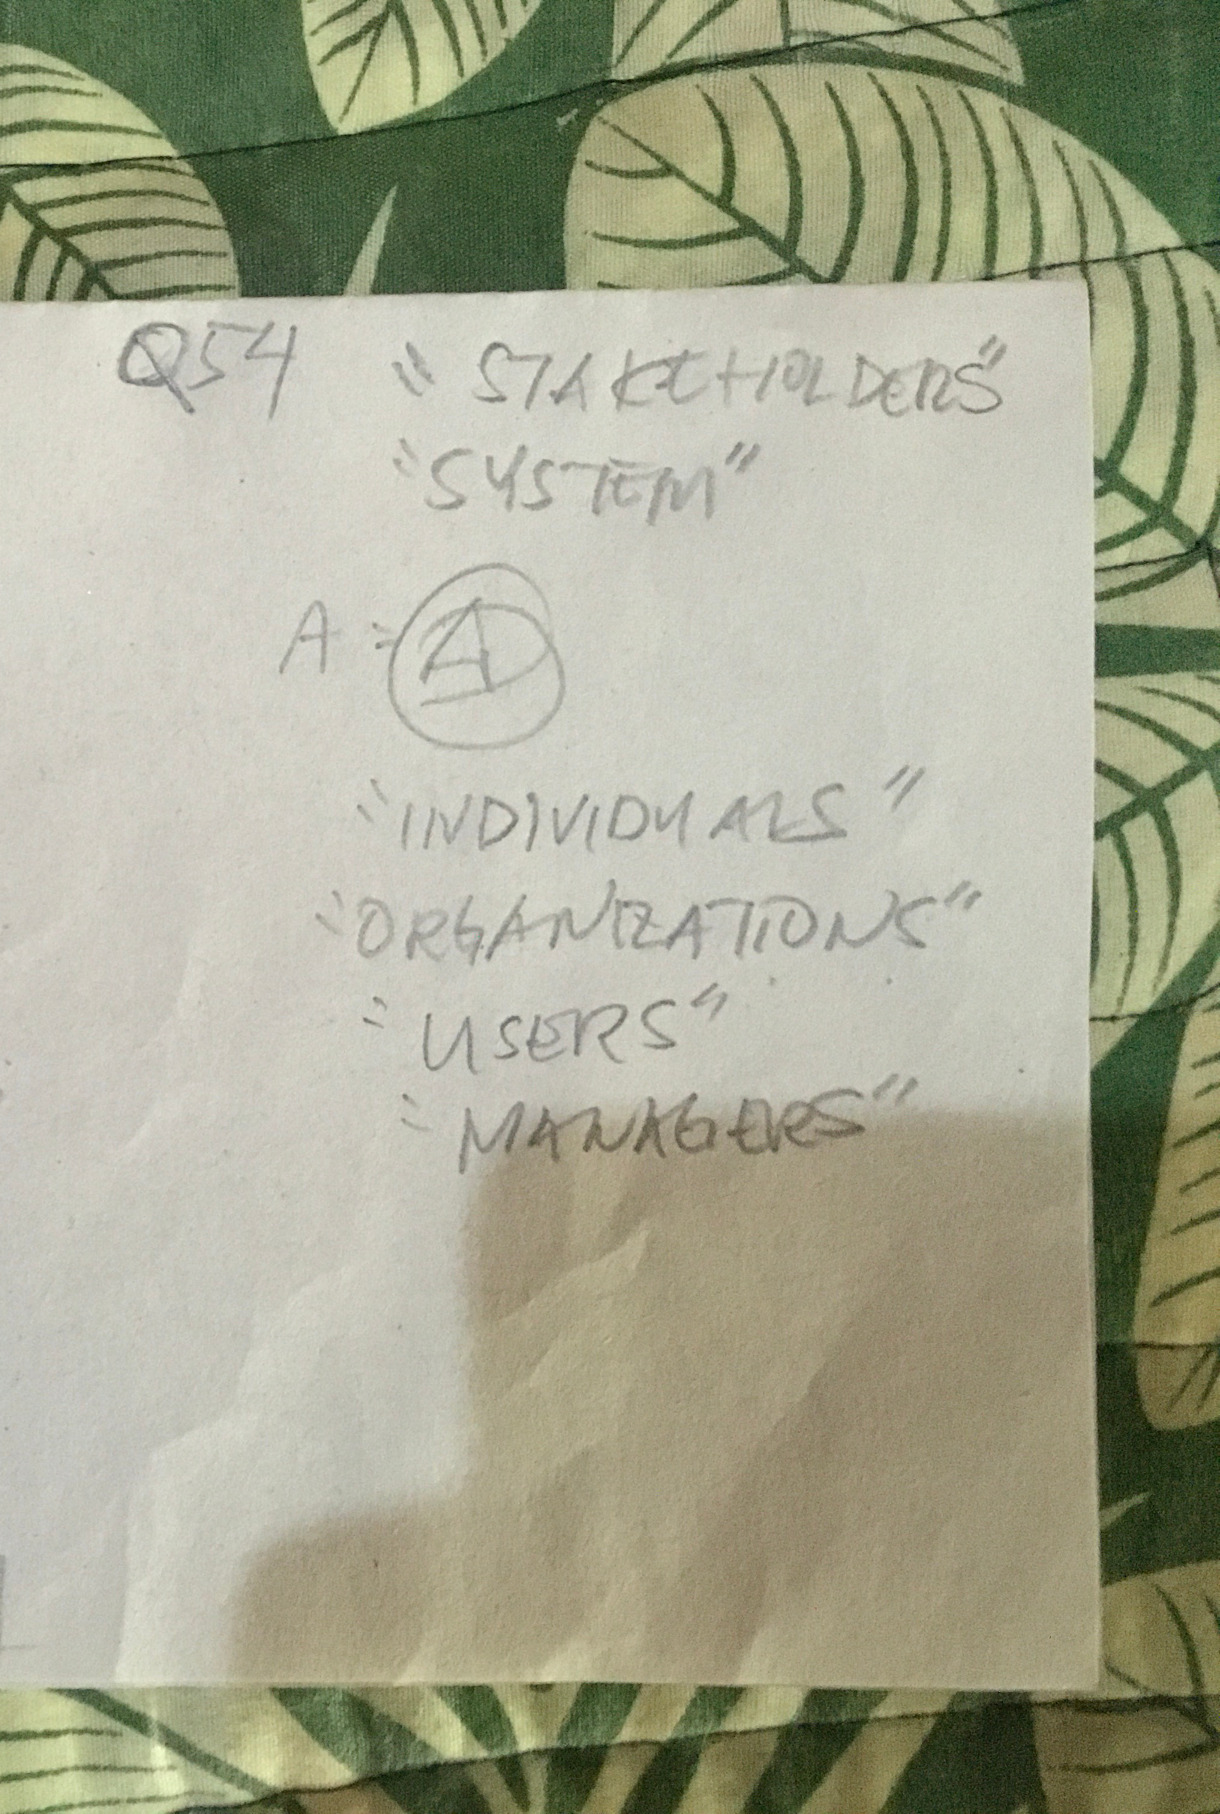 Q54 "STAKEHOLDERS"
"SYSTEM"
A = A
"INDIVIDUALS"
"ORGANIZATIONS"
"USERS"
"MANAGERS"